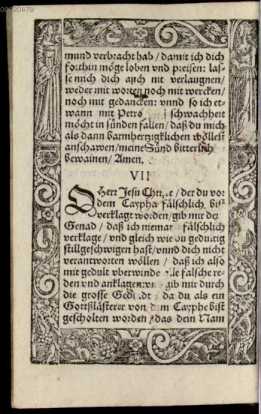 mund verbracht hab / damit ich dich
forthin möge loben vnd preisen: las-
se mich dich auch nit verlaugnen /
weder mit worten noch mit wercken /
noch mit gedancken: vnnd so ich et-
wann mit Petro schwachheit
möcht in sünden fallen / daß du mich
als dann barmhertzigklichen wöllest
anschawen / meine Sünd bitterlich
bewainen / Amen.
VII
O Herr Jesu / der du vor
dem Caypha fälschlich bist
verklagt worden / gib mir die
Genad / daß ich niemand fälschlich
verklage / vnd gleich wie du gedultig
stillgeschwigen hast / vnnd dich nicht
verantworten wöllen / daß ich also
mit gedult vberwinde alle falsche re-
den vnd anklagen: gib mir durch
die grosse Gedult / da du als ein
Gottslästerer von dem Cayphe bist
gescholten worden / das dein Nam